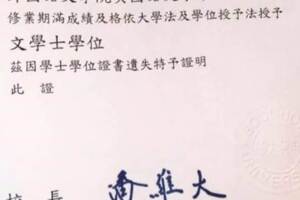 修業期滿成績及格依大學法及學位授予法授予
文學士學位
茲因學士學位證書遺失特予證明
此證
校長 潘維大